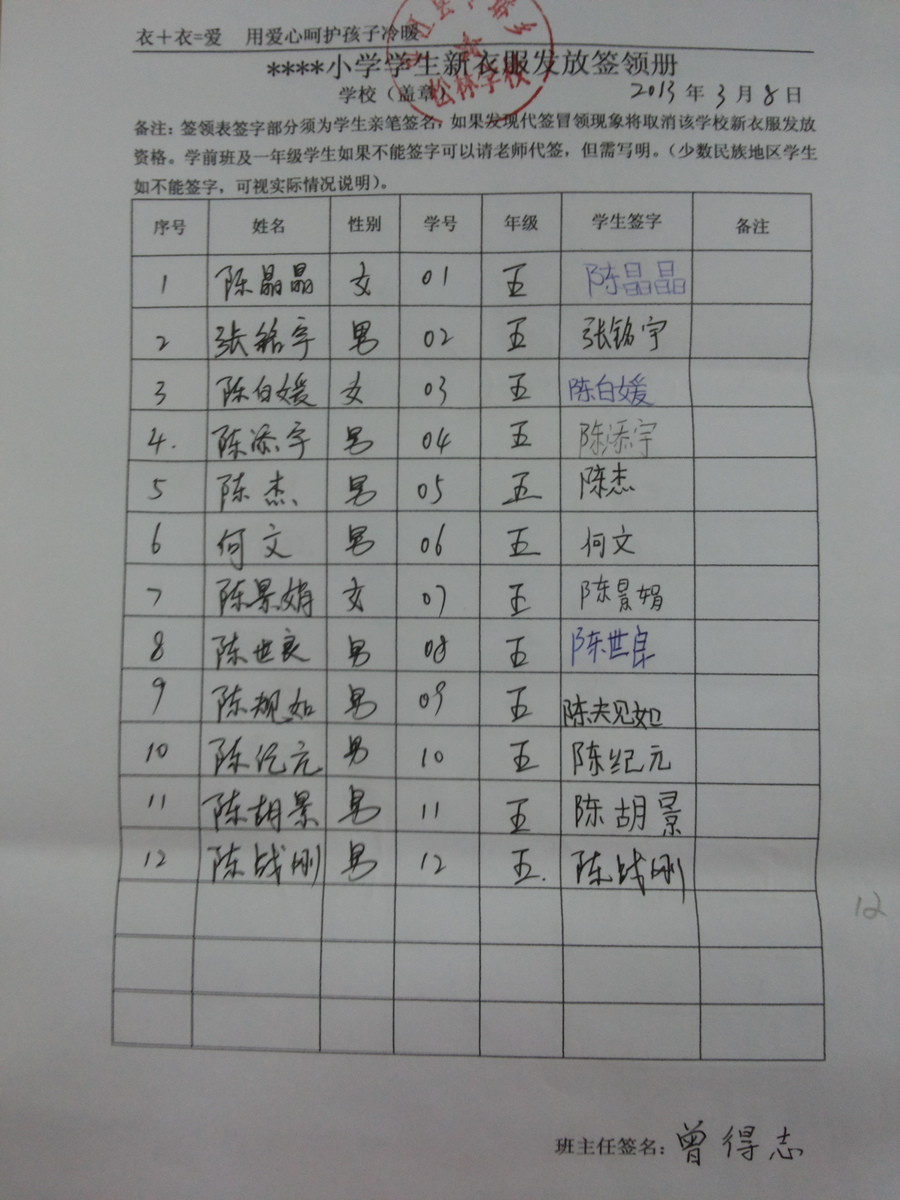 衣＋衣=爱 用爱心呵护孩子冷暖
****小学学生新衣服发放签领册
学校（盖章） 2013年3月8日
松林学校
备注：签领表签字部分须为学生亲笔签名，如果发现代签冒领现象将取消该学校新衣服发放
资格。学前班及一年级学生如果不能签字可以请老师代签，但需写明。（少数民族地区学生
如不能签字，可视实际情况说明）。
序号 姓名 性别 学号 年级 学生签字 备注
1 陈晶晶 女 01 五 陈晶晶
2 张铭宇 男 02 五 张铭宇
3 陈白媛 女 03 五 陈白媛
4. 陈添宇 男 04 五 陈添宇
5 陈杰 男 05 五 陈杰
6 何文 男 06 五 何文
7 陈景娟 女 07 五 陈景娟
8 陈世良 男 08 五 陈世良
9 陈规如 男 09 五 陈规如
10 陈纪元 男 10 五 陈纪元
11 陈胡景 男 11 五 陈胡景
12 陈战刚 男 12 五. 陈战刚
12
班主任签名：曾得志